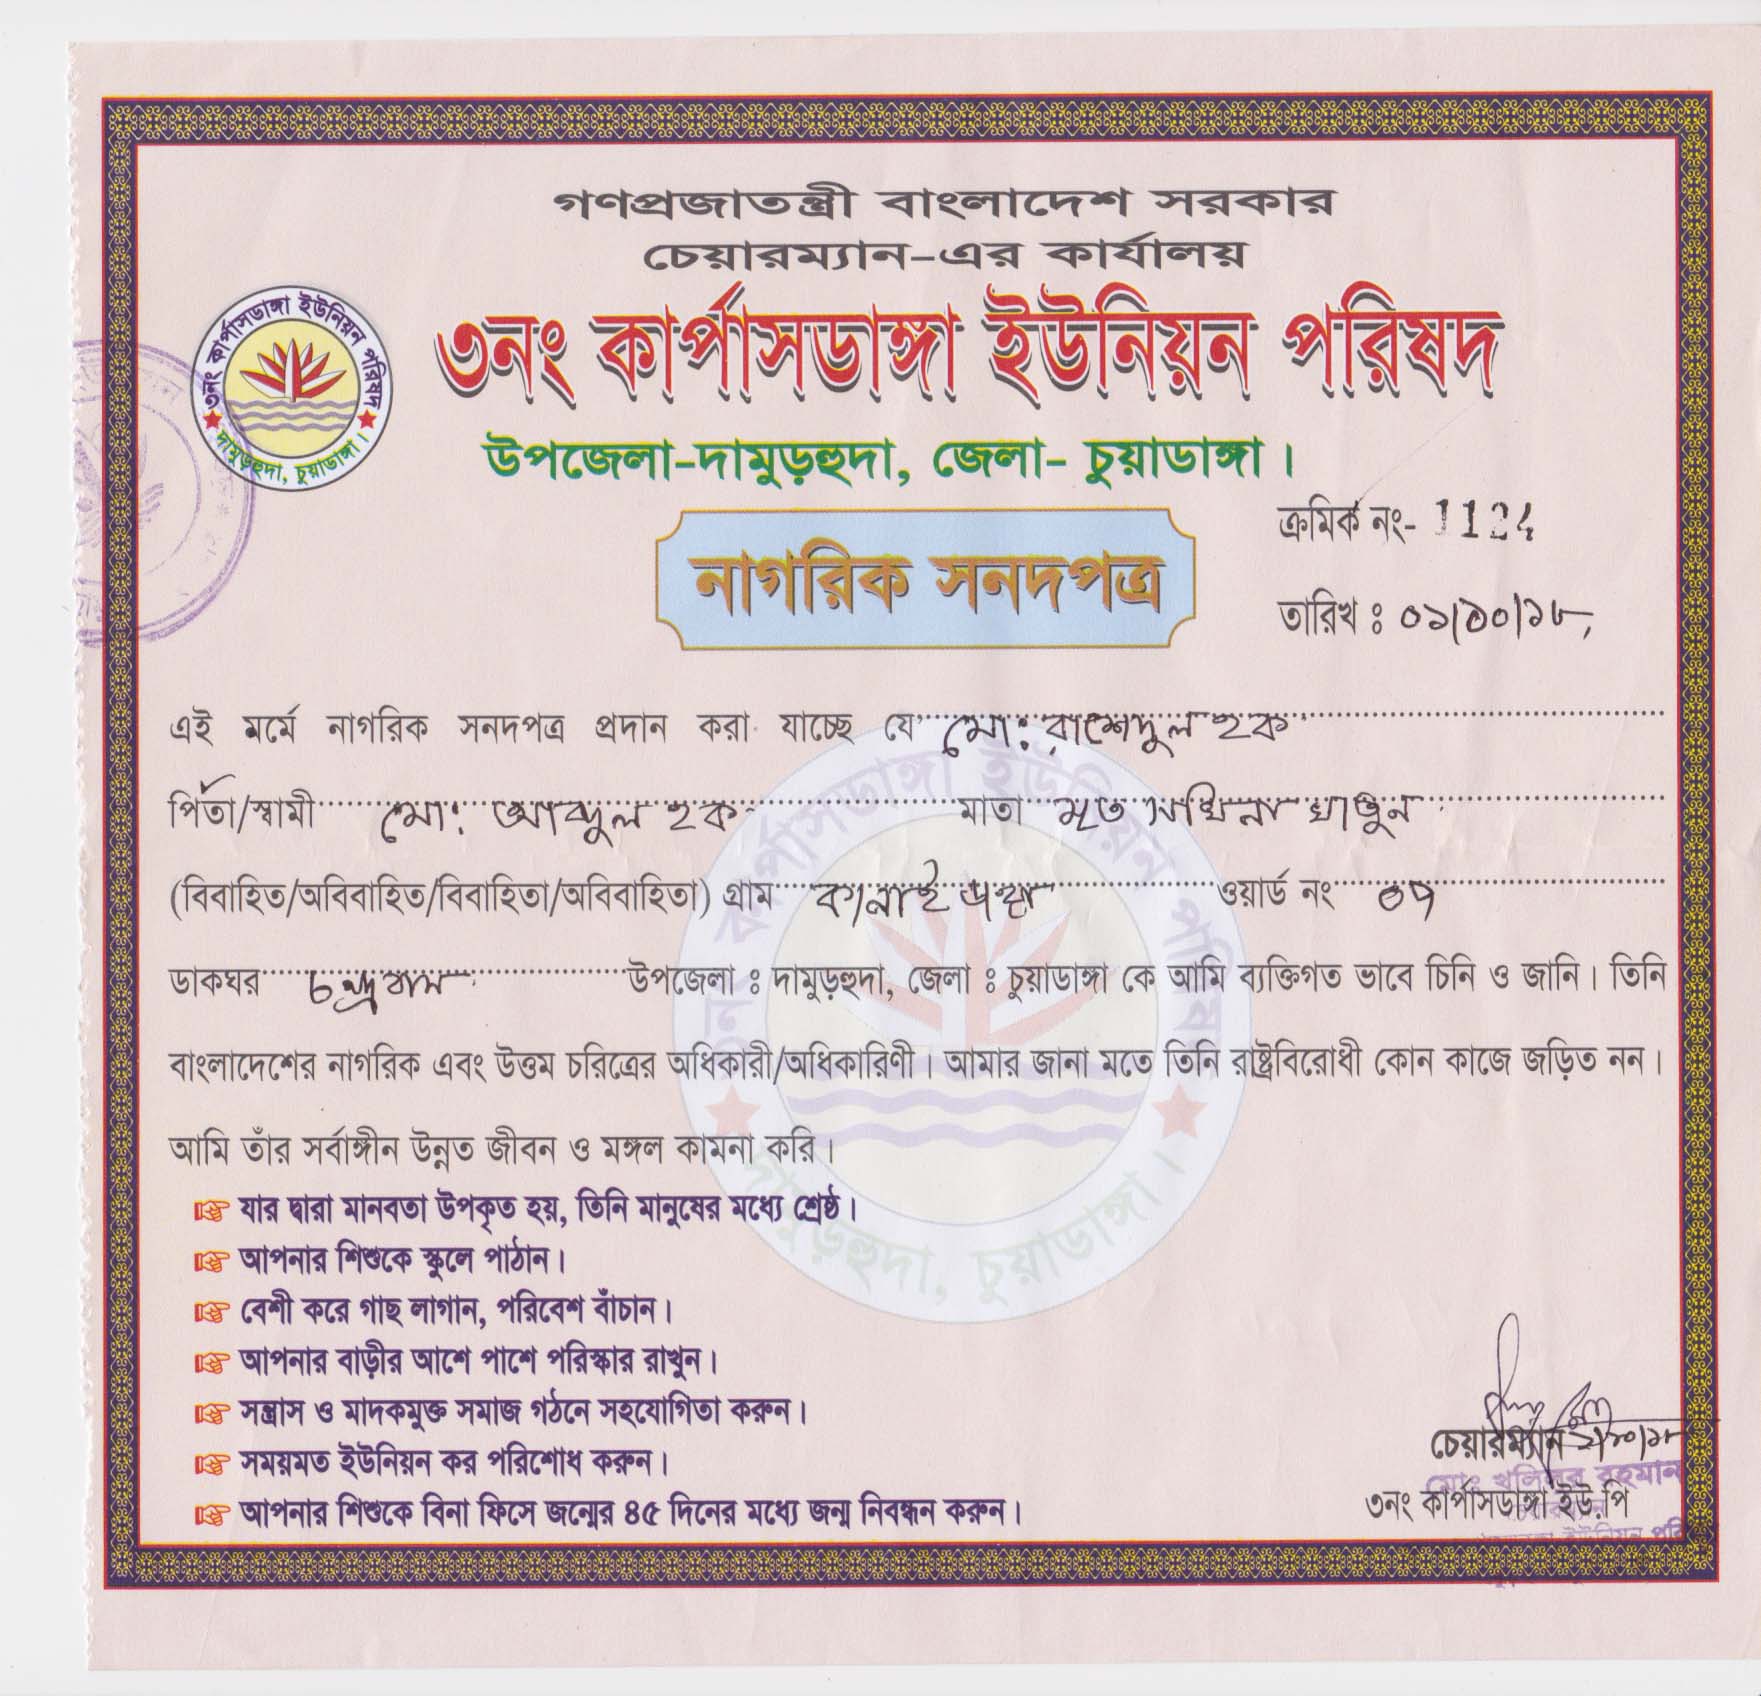 গণপ্রজাতন্ত্রী বাংলাদেশ সরকার
চেয়ারম্যান-এর কার্যালয়
৩নং কার্পাসডাঙ্গা ইউনিয়ন পরিষদ
উপজেলা-দামুড়হুদা, জেলা- চুয়াডাঙ্গা।
৩নং কার্পাসডাঙ্গা ইউনিয়ন পরিষদ
দামুড়হুদা, চুয়াডাঙ্গা।
ক্রমিক নং- 1124
নাগরিক সনদপত্র
তারিখ ঃ ০১/১০/১৮
এই মর্মে নাগরিক সনদপত্র প্রদান করা যাচ্ছে যে মো: রাশেদুল হক
পিতা/স্বামী মো: আব্দুল হক মাতা মৃত খাতুন
(বিবাহিত/অবিবাহিত/বিবাহিতা/অবিবাহিতা) গ্রাম কানাইডাঙ্গা ওয়ার্ড নং ০৭
ডাকঘর চন্দ্রবাস উপজেলা ঃ দামুড়হুদা, জেলা ঃ চুয়াডাঙ্গা কে আমি ব্যক্তিগত ভাবে চিনি ও জানি। তিনি
বাংলাদেশের নাগরিক এবং উত্তম চরিত্রের অধিকারী/অধিকারিণী। আমার জানা মতে তিনি রাষ্ট্রবিরোধী কোন কাজে জড়িত নন।
আমি তাঁর সর্বাঙ্গীন উন্নত জীবন ও মঙ্গল কামনা করি।
যার দ্বারা মানবতা উপকৃত হয়, তিনি মানুষের মধ্যে শ্রেষ্ঠ।
আপনার শিশুকে স্কুলে পাঠান।
বেশী করে গাছ লাগান, পরিবেশ বাঁচান।
আপনার বাড়ীর আশে পাশে পরিস্কার রাখুন।
সন্ত্রাস ও মাদকমুক্ত সমাজ গঠনে সহযোগিতা করুন।
সময়মত ইউনিয়ন কর পরিশোধ করুন।
আপনার শিশুকে বিনা ফিসে জন্মের ৪৫ দিনের মধ্যে জন্ম নিবন্ধন করুন।
চেয়ারম্যান
মোঃ খলিলুর রহমান
৩নং কার্পাসডাঙ্গা ইউ.পি